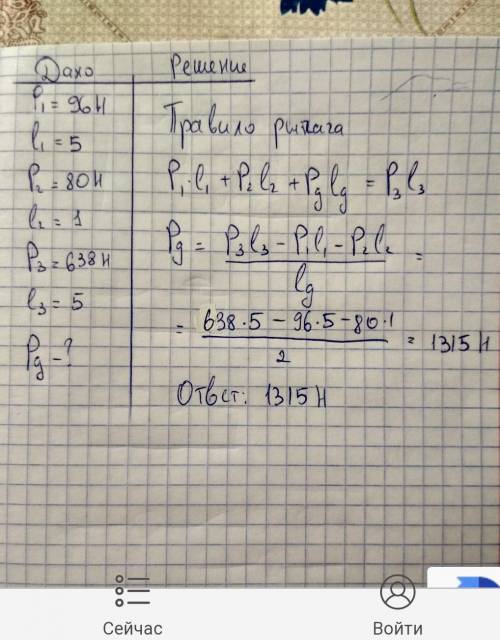 Дано
P₁ = 96 Н
l₁ = 5
P₂ = 80 Н
l₂ = 1
P₃ = 638 Н
l₃ = 5
Pg - ?
Решение
Правило рычага
P₁·l₁ + P₂l₂ + Pglg = P₃l₃
Pg = (P₃l₃ - P₁l₁ - P₂l₂) / lg =
= (638·5 - 96·5 - 80·1) / 2 = 1315 Н
Ответ: 1315 Н
Сейчас
Войти